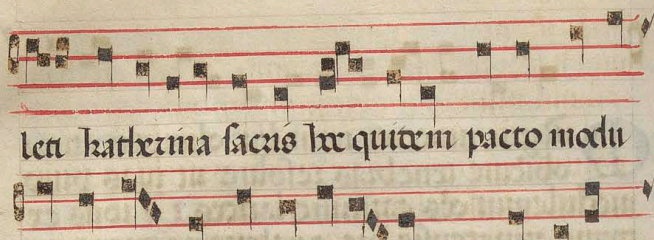 leti katherina sacris hec quidem pacto modu